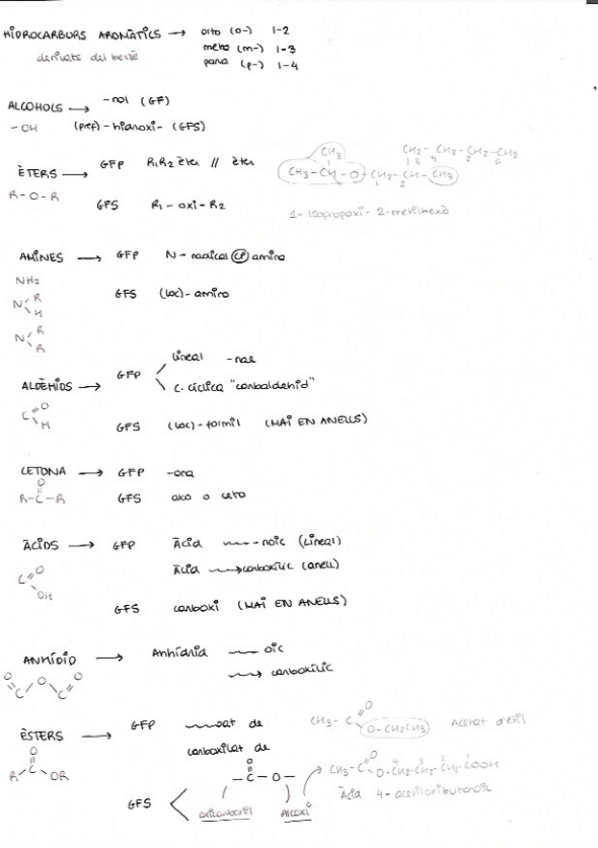 HIDROCARBURS AROMÀTICS → orto (o-) 1-2
derivats del benzè meta (m-) 1-3
para (p-) 1-4
ALCOHOLS → -nol (GF)
-OH (pref)-hidroxi- (GFS)
ÈTERS → GFP R₁R₂ èter // èter
R-O-R GFS R₁-oxi-R₂
CH₃ CH₂-CH₂-CH₂-CH₃
CH₃-CH-O-CH₂-CH-CH₃
1-Isopropoxi-2-metilhexà
AMINES → GFP N-radical CP amina
NH₂ GFS (loc)-amino
N R H
N R R
ALDEHIDS → GFP lineal -nal
C. cíclica "carbaldehid"
C O H GFS (loc)-formil (MAI EN ANELLS)
CETONA → GFP -ona
R-C-R O GFS oxo o ceto
ÀCIDS → GFP Àcid -noic (lineal)
Àcid → carboxílic (anell)
C O OH GFS carboxi (MAI EN ANELLS)
ANHÍDID → Anhídrid oic
C O O C O → carboxílic
ÈSTERS → GFP oat de
carboxilat de
CH₃-C O O-CH₂CH₃ Acetat d'etil
R C O OR -C-O- O
GFS oxicarbonil Alcoxi
CH₃-C O O-CH₂-CH₂-CH₂-COOH
Àcid 4-acetiloxibutanoic